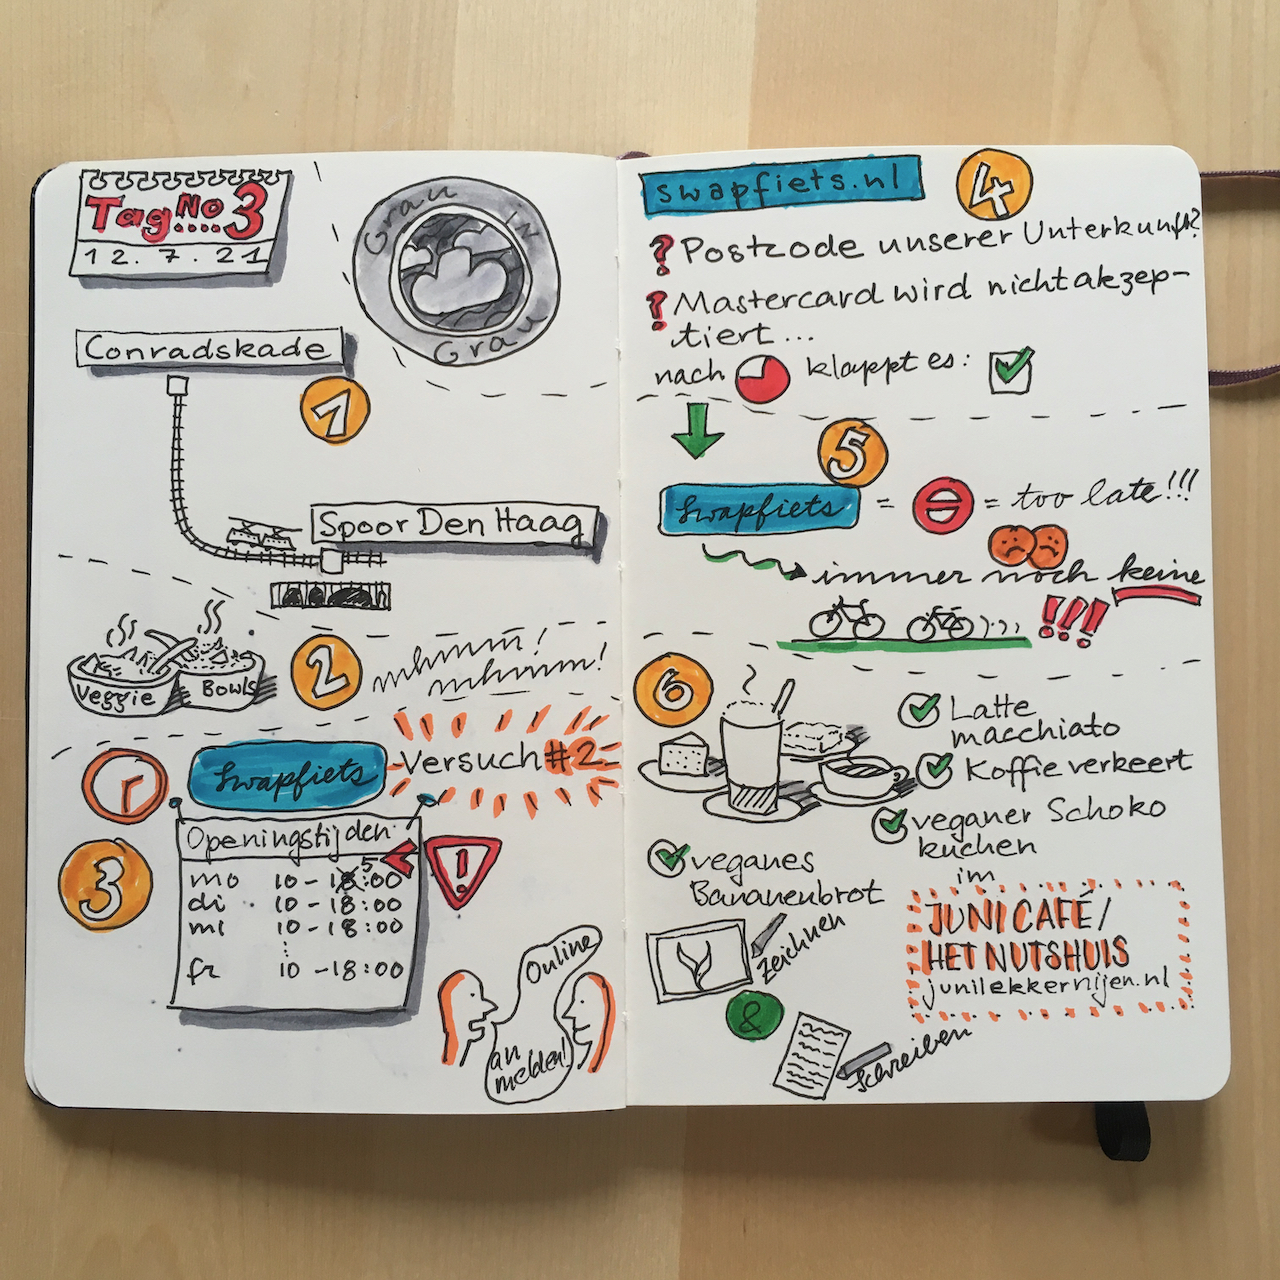 Tag No 3
12. 7. 21
Grau IN
Grau
Conradskade
1
Spoor Den Haag
veggie
Bowls
2
mhmm!
mhmmm!
Swapfiets
Versuch #2
3
Openingstijden
5
mo 10 - 18:00
di 10 - 18:00
mi 10 - 18:00
fr 10 - 18:00
!
Online
an
melden!
swapfiets.nl
4
? Postcode unserer Unterkunft?
! Mastercard wird nicht akzep-
tiert...
nach klappt es:
5
Swapfiets = = too late!!!
immer noch keine
!!!
6
Latte
macchiato
Koffie verkeert
veganer Schoko
kuchen
im
veganes
Bananenbrot
JUNI CAFÉ/
HET NUTSHUIS
junilekkernijen.nl
zeichnen
&
schreiben